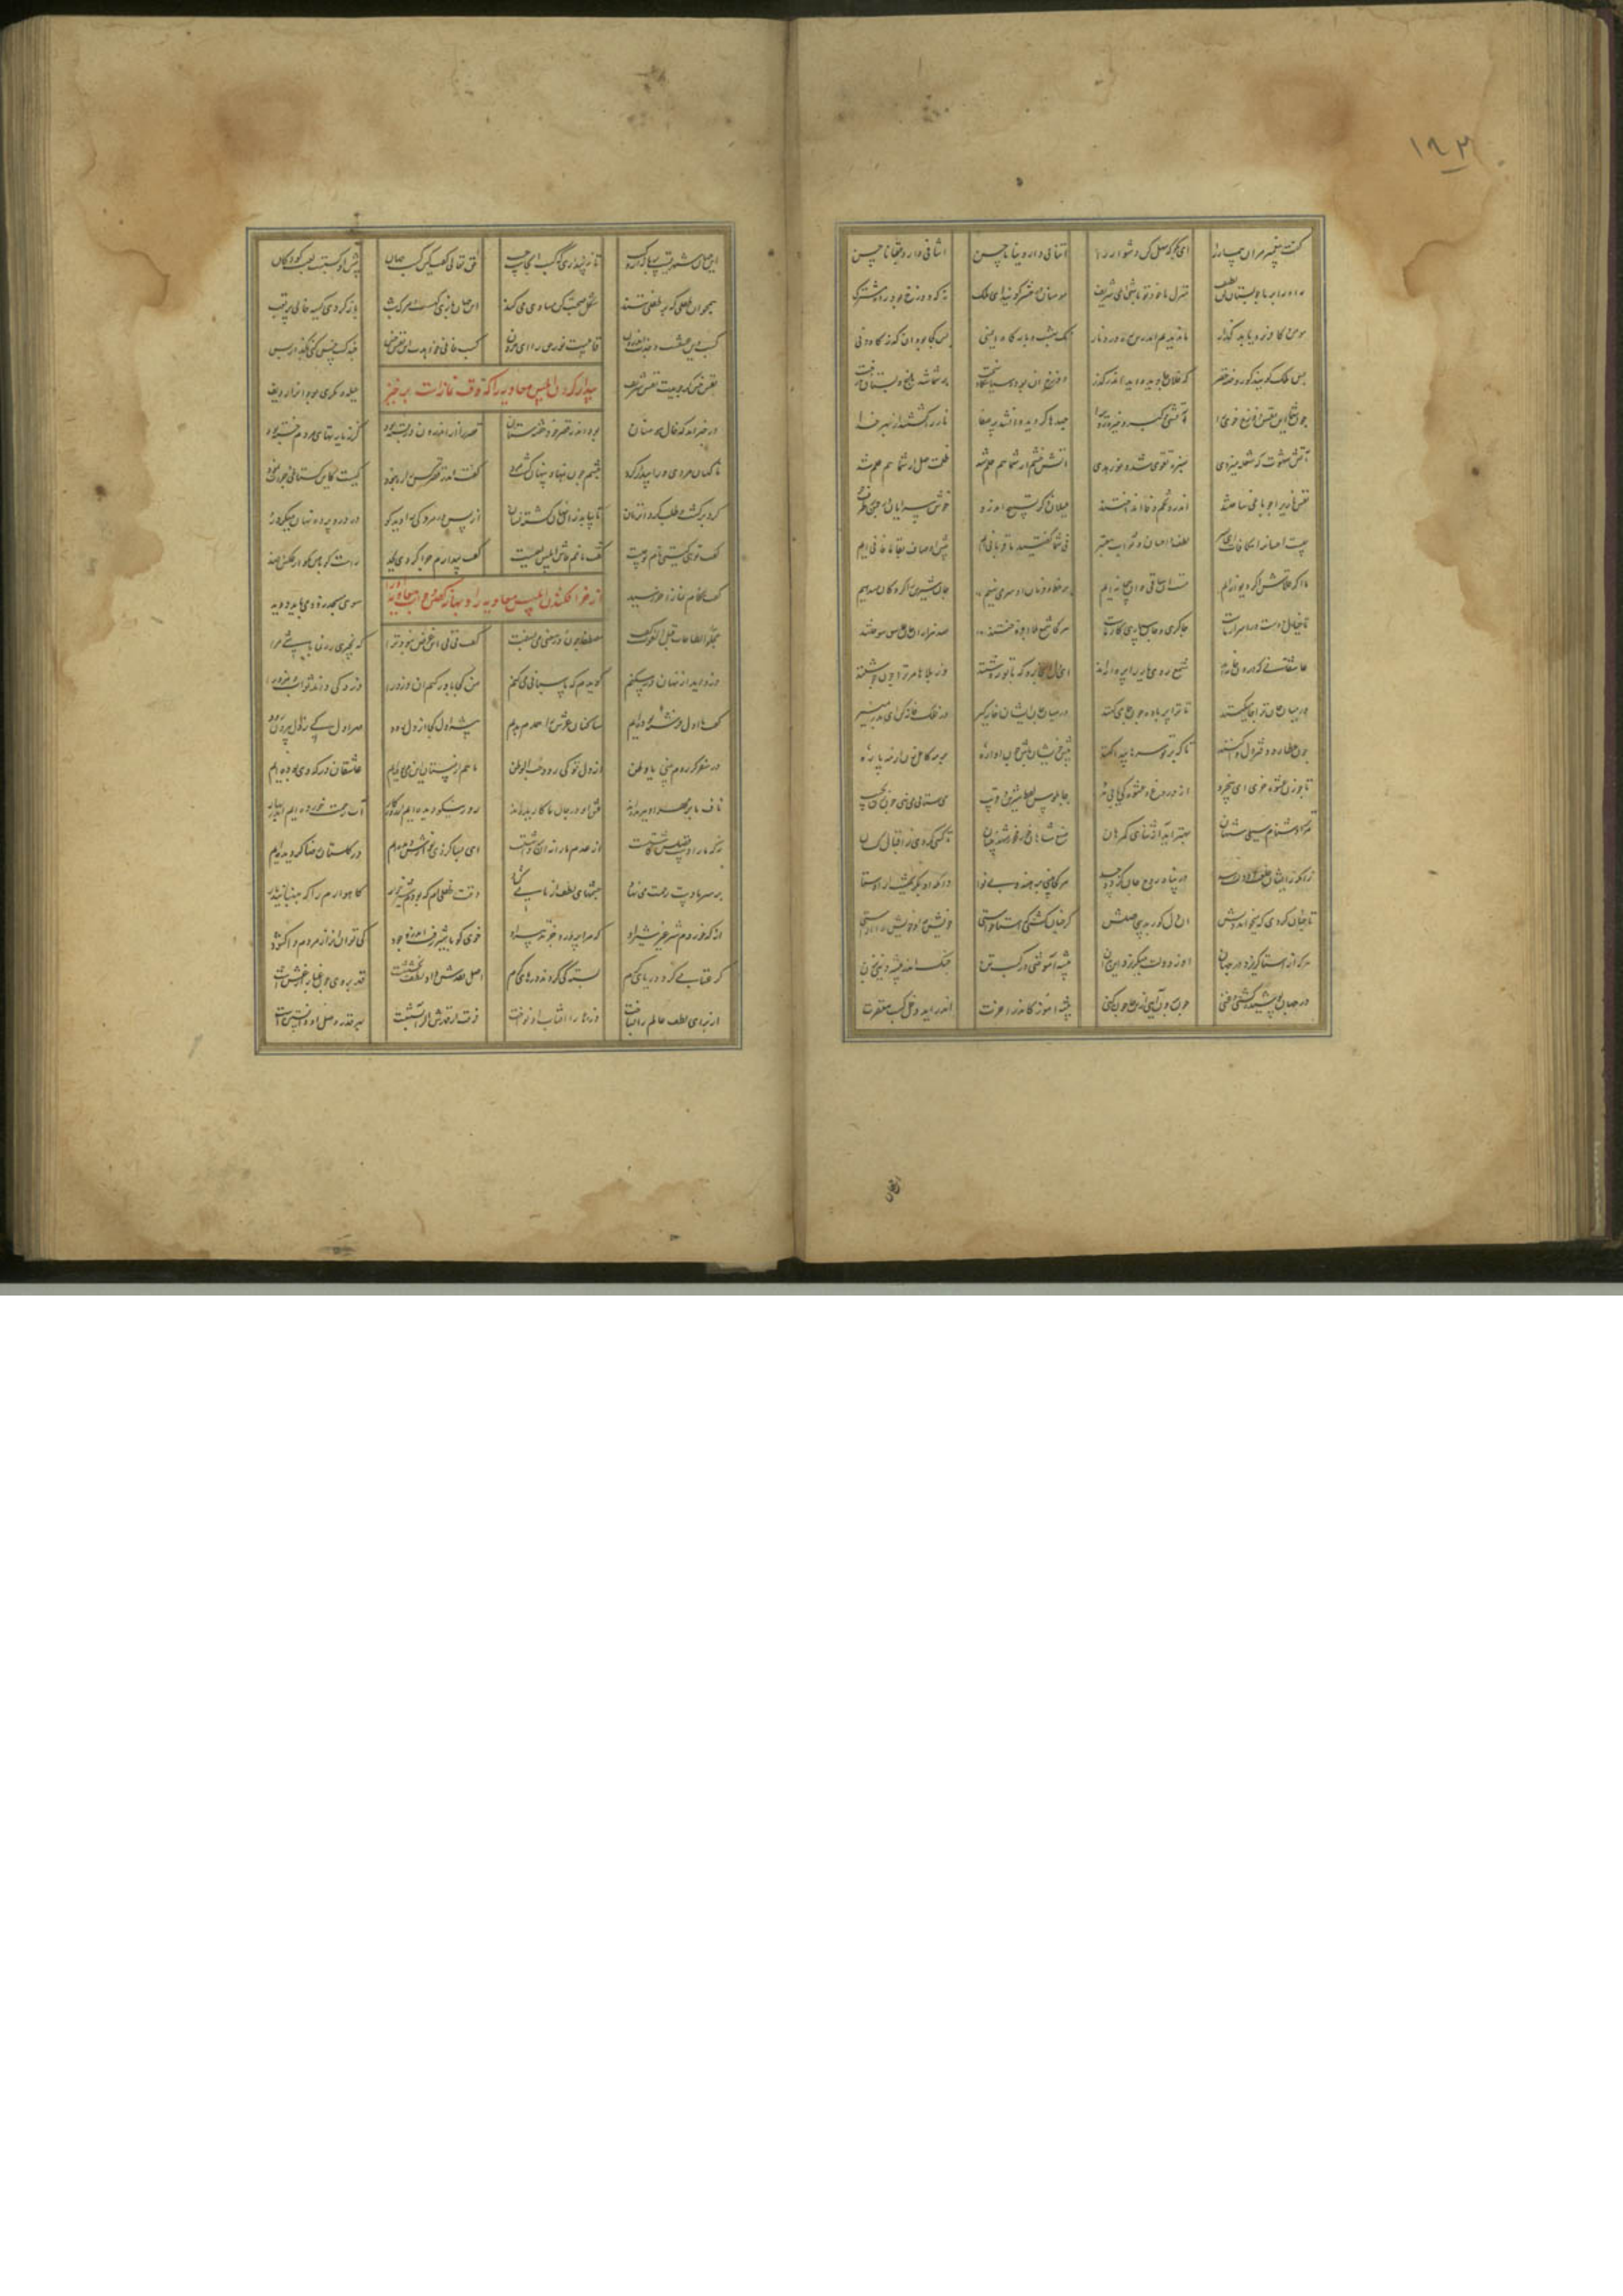 گفت پیغمبر مر آن بیمار را ای بگو کای سهل کن دشوار را آتنا فی دار دنیانا حسن آتنا فی دار عقبانا حسن
راه را بر ما چو بستان کن لطیف منزل ما خود تو باشی ای شریف مومنان در حشر گویند ای ملک نه که دوزخ بود راه مشترک
مومن و کافر برو یابد گذار ما ندیدیم اندرین ره دود و نار نک بهشت و بارگاه ایمنی پس کجا بود آن گذرگاه دنی
پس ملک گوید که آن روضه خضر که فلان جا دیده اید اندر گذر دوزخ آن بود و سیاستگاه سخت بر شما شد باغ و بستان و درخت
چون شما این نفس دوزخ خوی را جهدها کردید و او شد پر صفا نار را کشتید از بهر خدا
آتش شهوت که شعله میزدی سبزه تقوی شد و نور هدی آتش خشم از شما هم حلم شد ظلمت جهل از شما هم علم شد
نفس ناری را چو باغی ساختید اندرو تخم وفا انداختید بلبلان ذکر و تسبیح اندرو خوش سرایان در چمن بر طرف جو
چیست احسان را مکافات ای پسر لطف و احسان و ثواب معتبر نی شما گفتید ما قربانی ایم پیش اوصاف بقا ما فانی ایم
ما اگر قلاش و گر دیوانه ایم مست آن ساقی و آن پیمانه ایم بر خط و فرمان او سر می نهیم جان شیرین را گروگان میدهیم
تا خیال دوست در اسرار ماست چاکری و جان سپاری کار ماست هر کجا شمع بلا افروختند صد هزاران جان عاشق سوختند
عاشقانی کز درون خانه اند شمع روی یار را پروانه اند ای دل آنجا رو که با تو روشنند وز بلاها مر ترا چون جوشنند
در میان جان ترا جا میکنند تا ترا پر باده چون جامی کنند در میان جان ایشان خانه گیر در فلک خانه کن ای بدر منیر
چون عطارد دفتر دل وا کنند تا که بر تو سرها پیدا کنند پیش خویشان باش چون آواره بر مه کامل زن ار مه پاره
تا چو زن عشوه خری ای بی خرد از دروغ و عشوه کی یابی مدد چاپلوس و لفظ شیرین و فریب می ستانی می نهی چون زر بجیب
مر ترا دشنام و سیلی شهان بهتر آید از ثنای گمرهان صفع شاهان خور مخور شهد خسان تا کسی گردی ز اقبال کسان
زانکه زیشان خلعت و دولت رسد در پناه روح جان گردد جسد هر کجا بینی برهنه بی نوا دانکه او بگریختست از اوستا
تا چنان گردد که میخواهد دلش آن دل کور بد بی حاصلش گر چنان گشتی که استا خواستی خویش را و خویش را آراستی
هر که از استا گریزد در جهان او ز دولت میگریزد این بدان پیشه آموختی در کسب تن چنگ اندر پیشه دینی بزن
در جهان پوشیده گشتی و غنی چون برون آیی ازینجا چون کنی پیشه آموز کاندر آخرت اندر آید دخل کسب مغفرت
آن جهان
این جهان شهریست پر بازار و کسب تا نپنداری که کسب اینجاست حسب حق تعالی گفت کین کسب جهان پیش آن کسبست لعب کودکان
همچو آن طفلی که بر طفلی تند شکل صحبت کن مساسی می کند این جهان بازی گهست و مرگ شب باز گردی کیسه خالی پر تعب
کسب دین عشقست و جذب اندرون قابلیت نور حق را ای حرون کسب فانی خواهدت این نفس خس چند کسب خس کنی بگذار بس
نفس خس گر جویدت کسب شریف حیله و مکری بود آنرا ردیف
بیدار کردن ابلیس معاویه را که وقت نمازست برخیز
در خبر آمد که خال مومنان بود اندر قصر خود خفته ستان قصر را از اندرون در بسته بود کز زیارتهای مردم خسته بود
ناگهان مردی ورا بیدار کرد چشم چون بگشاد پنهان گشت مرد گفت اندر قصر کس را ره نبود کیست کاین گستاخی و جرات نمود
گرد برگشت و طلب کرد آن زمان تا بیابد زان نهان گشته نشان از پس در مدبری را دید کو در در و پرده نهان میکرد رو
گفت هی تو کیستی نام تو چیست گفت نامم فاش ابلیس شقیست گفت بیدارم چرا کردی بجد راست گو با من مگو بر عکس و ضد
از خر افکندن ابلیس معاویه را و بهانه کردن و جواب معاویه
گفت هنگام نماز آخر رسید سوی مسجد زود می باید دوید
عجلوا الطاعات قبل الفوت گفت مصطفی چون در معنی می بسفت گفت نی نی این غرض نبود ترا که بخیری رهنما باشی مرا
دزد آید از نهان در مسکنم گویدم که پاسبانی می کنم من کجا باور کنم آن دزد را دزد کی داند ثواب و مزد را
گفت ما اول فرشته بوده ایم ساکنان عرش را همدم بدیم پیشه اول کجا از دل رود مهر اول کی ز دل بیرون شود
در سفر گر روم بینی یا ختن از دل تو کی رود حب الوطن ما هم از مستان این می بوده ایم عاشقان درگه وی بوده ایم
ناف ما بر مهر او ببریده اند عشق او در جان ما کاریده اند روز نیکو دیده ایم از روزگار آب رحمت خورده ایم اندر بهار
نه که ما را دست فضلش کاشتست از عدم ما را نه او برداشتست ای بسا کز وی نوازش دیده ایم در گلستان رضا گردیده ایم
بر سر ما دست رحمت می نهاد چشمهای لطف از ما می گشاد وقت طفلی ام که بودم شیر جو گاهوارم را که جنبانید او
از که خوردم شیر غیر شیر او که مرا پرورد جز تدبیر او خوی کو با شیر رفت اندر وجود کی توان آنرا ز مردم وا گشود
گر عتابی کرد دریای کرم بسته کی گردند درهای کرم اصل نقدش داد و لطف و بخششست قهر بر وی چون غباری از غشست
از برای لطف عالم را بساخت ذره ها را آفتاب او نواخت فرقت از قهرش اگر آبستنست بهر قدر وصل او دانستنست